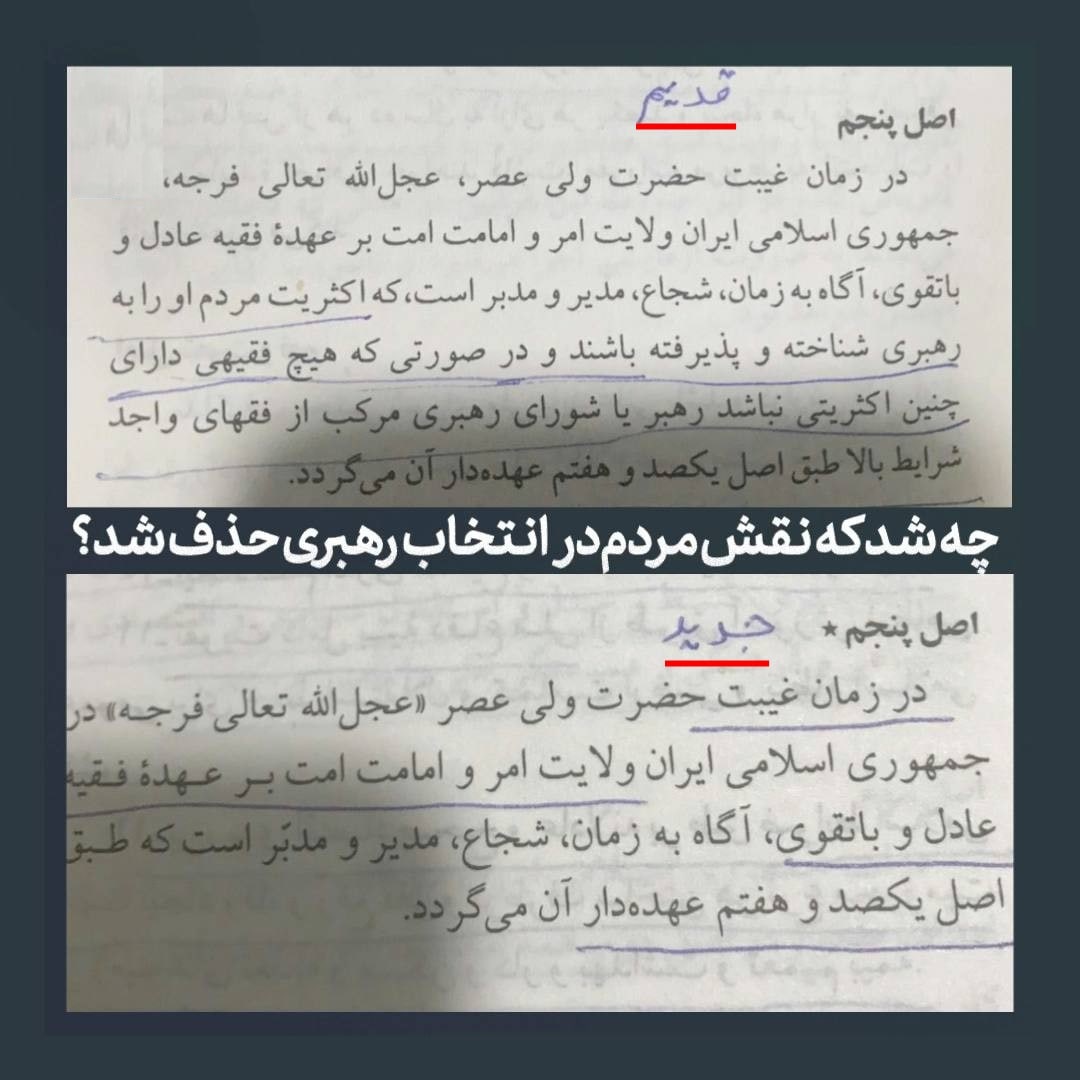 قدیم
اصل پنجم
در زمان غیبت حضرت ولی عصر، عجل‌الله تعالی فرجه،
جمهوری اسلامی ایران ولایت امر و امامت امت بر عهدهٔ فقیه عادل و
باتقوی، آگاه به زمان، شجاع، مدیر و مدبر است، که اکثریت مردم او را به
رهبری شناخته و پذیرفته باشند و در صورتی که هیچ فقیهی دارای
چنین اکثریتی نباشد رهبر یا شورای رهبری مرکب از فقهای واجد
شرایط بالا طبق اصل یکصد و هفتم عهده‌دار آن می‌گردد.
چه شد که نقش مردم در انتخاب رهبری حذف شد؟
جدید
اصل پنجم *
در زمان غیبت حضرت ولی عصر «عجل‌الله تعالی فرجه» در
جمهوری اسلامی ایران ولایت امر و امامت امت بر عهدهٔ فقیه
عادل و باتقوی، آگاه به زمان، شجاع، مدیر و مدبّر است که طبق
اصل یکصد و هفتم عهده‌دار آن می‌گردد.